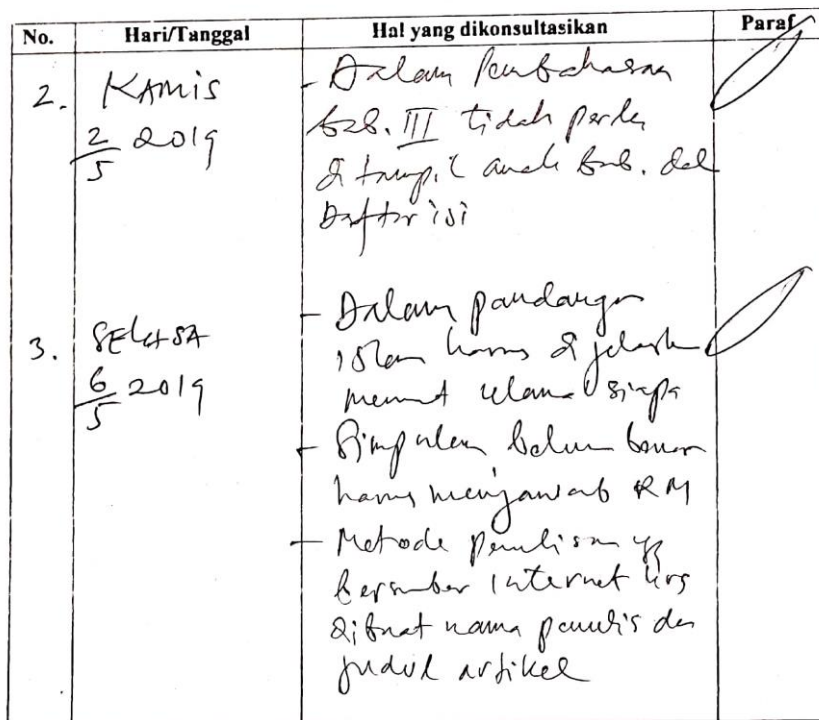 No. Hari/Tanggal Hal yang dikonsultasikan Paraf
2. KAMIS
2/5 2019
- Dalam Pembahasan
bab. III tidak perlu
di tampil anak bab. dal
Daftar isi
3. SELASA
6/5 2019
- Dalam pandangan
islam harus di jelaskan
menurut ulama siapa
- Simpulan belum benar
harus menjawab RM
- Metode penulisan yg
bersumber internet hrs
dibuat nama penulis dan
judul artikel